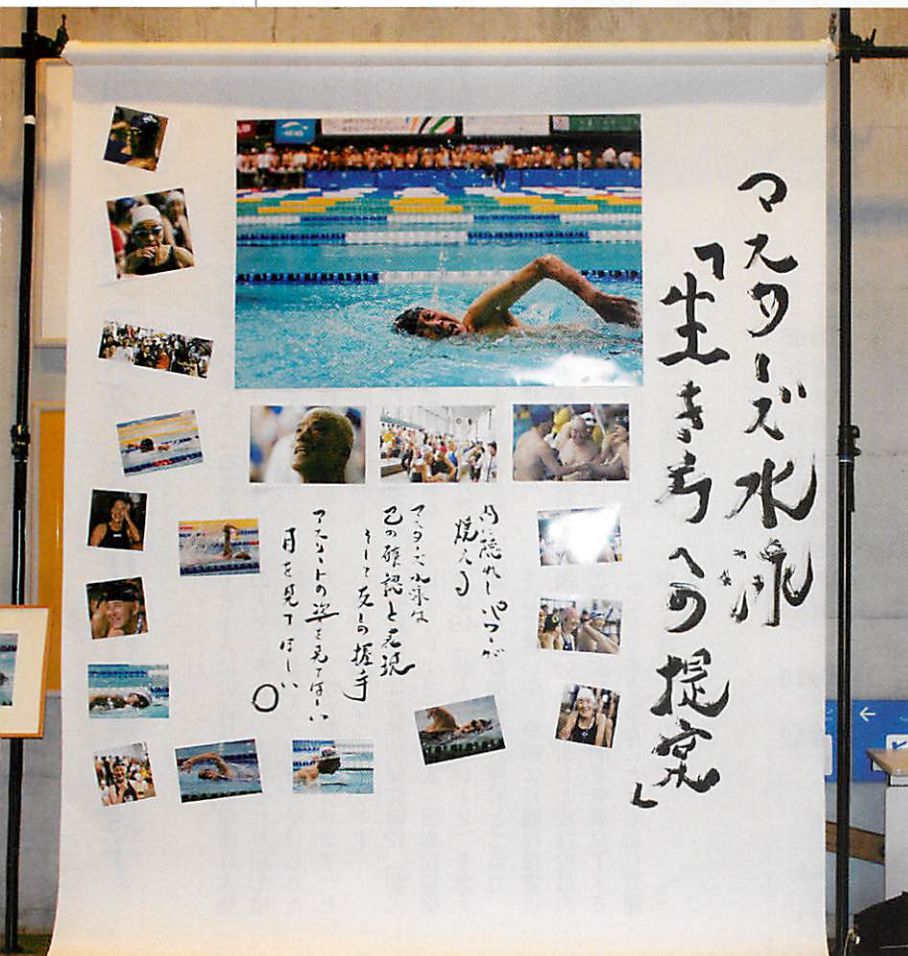 マスターズ水泳
「生き方への提案」
内に隠れしパワーが
燃える
マスターズ水泳は
己の確認と表現
そして友との握手
アスリートの姿を見てほしい
月を見てほしい